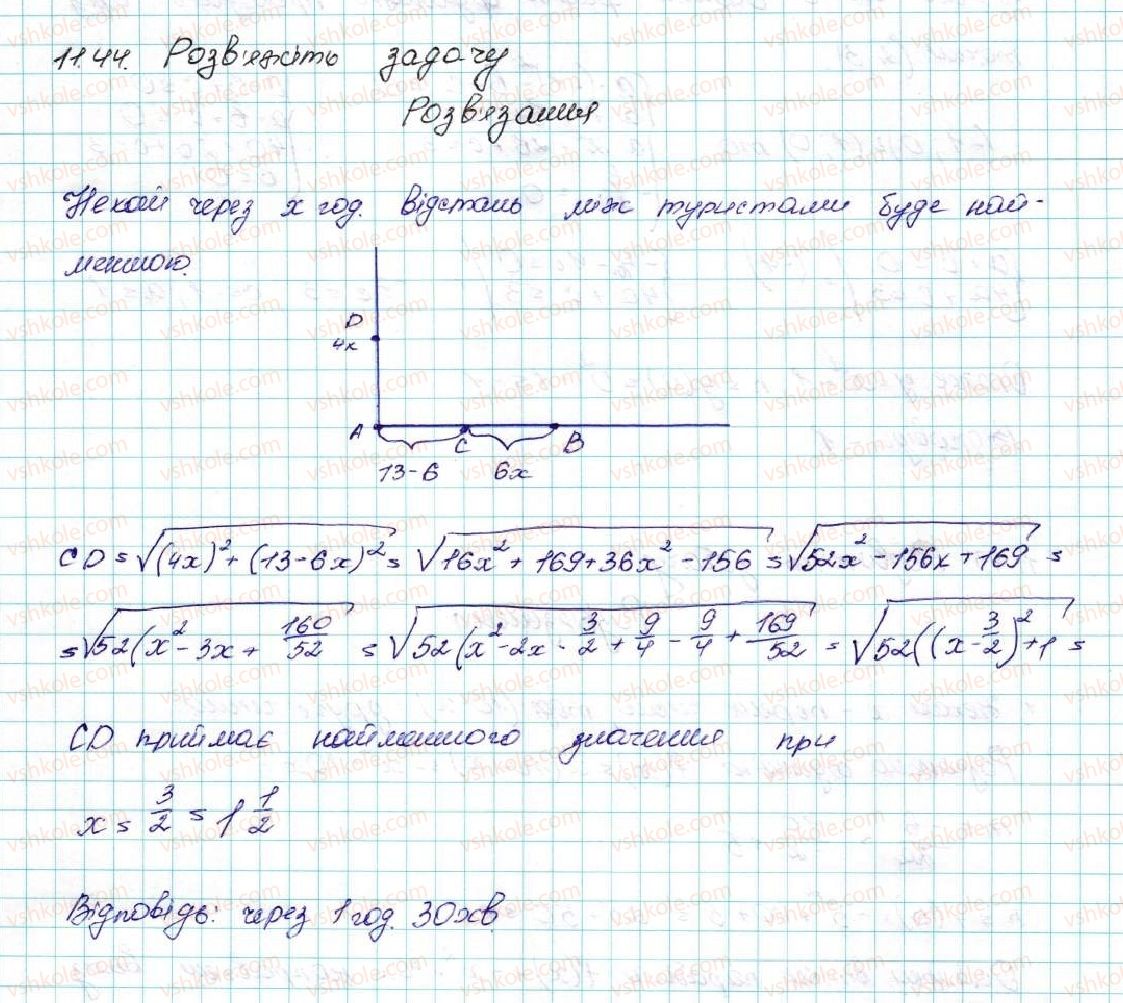 11.44. Розв'яжіть задачу
Розв'язання
Нехай через x год. відстань між туристами буде най-
меншою.
D
4x
A C B
13-6 6x
CD = √(4x)² + (13-6x)² = √16x² + 169 + 36x² - 156 = √52x² - 156x + 169 =
= √52(x² - 3x + 160/52 = √52(x² - 2x · 3/2 + 9/4 - 9/4 + 169/52 = √52((x - 3/2)² + 1 =
CD приймає найменшого значення при
x = 3/2 = 1 1/2
Відповідь: через 1 год. 30хв.